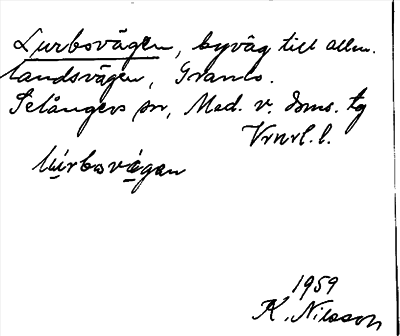 Lurbovägen, byväg till allm.
landsvägen, Granlo.
Selångers sn, Med. v. doms. tg
Vrnrl. l.
lúrbovägan
1959
K. Nilsson